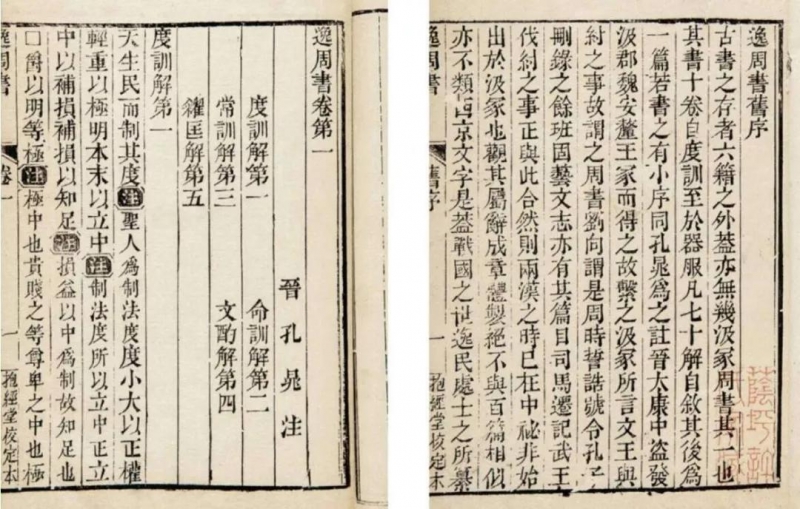 逸周書舊序
古書之存者六籍之外蓋亦無幾汲冢周書其一也
其書十卷自度訓至於器服凡七十解自敘其後爲
一篇若書之有小序同孔晁爲之註晉太康中盜發
汲郡魏安釐王冢而得之故繫之汲冢所言文王與
紂之事故謂之周書劉向謂是周時誓誥號令孔子
刪錄之餘班固藝文志亦有其篇目司馬遷記武王
伐紂之事正與此合然則兩漢之時已在中祕非始
出於汲冢也觀其屬辭成章體製絕不與百篇相似
亦不類西京文字是蓋戰國之世逸民處士之所纂
逸周書 舊序 一 抱經堂校定本
逸周書卷第一
晉 孔晁 注
度訓解第一 命訓解第二
常訓解第三 文酌解第四
糴匡解第五
度訓解第一
天生民而制其度注聖人爲制法度度小大以正權
輕重以極明本末以立中注制法度所以立中正立
中以補損補損以知足注損益以中爲制故知足也
□爵以明等極注極中也貴賤之等尊卑之中也極
逸周書 卷一 一 抱經堂校定本